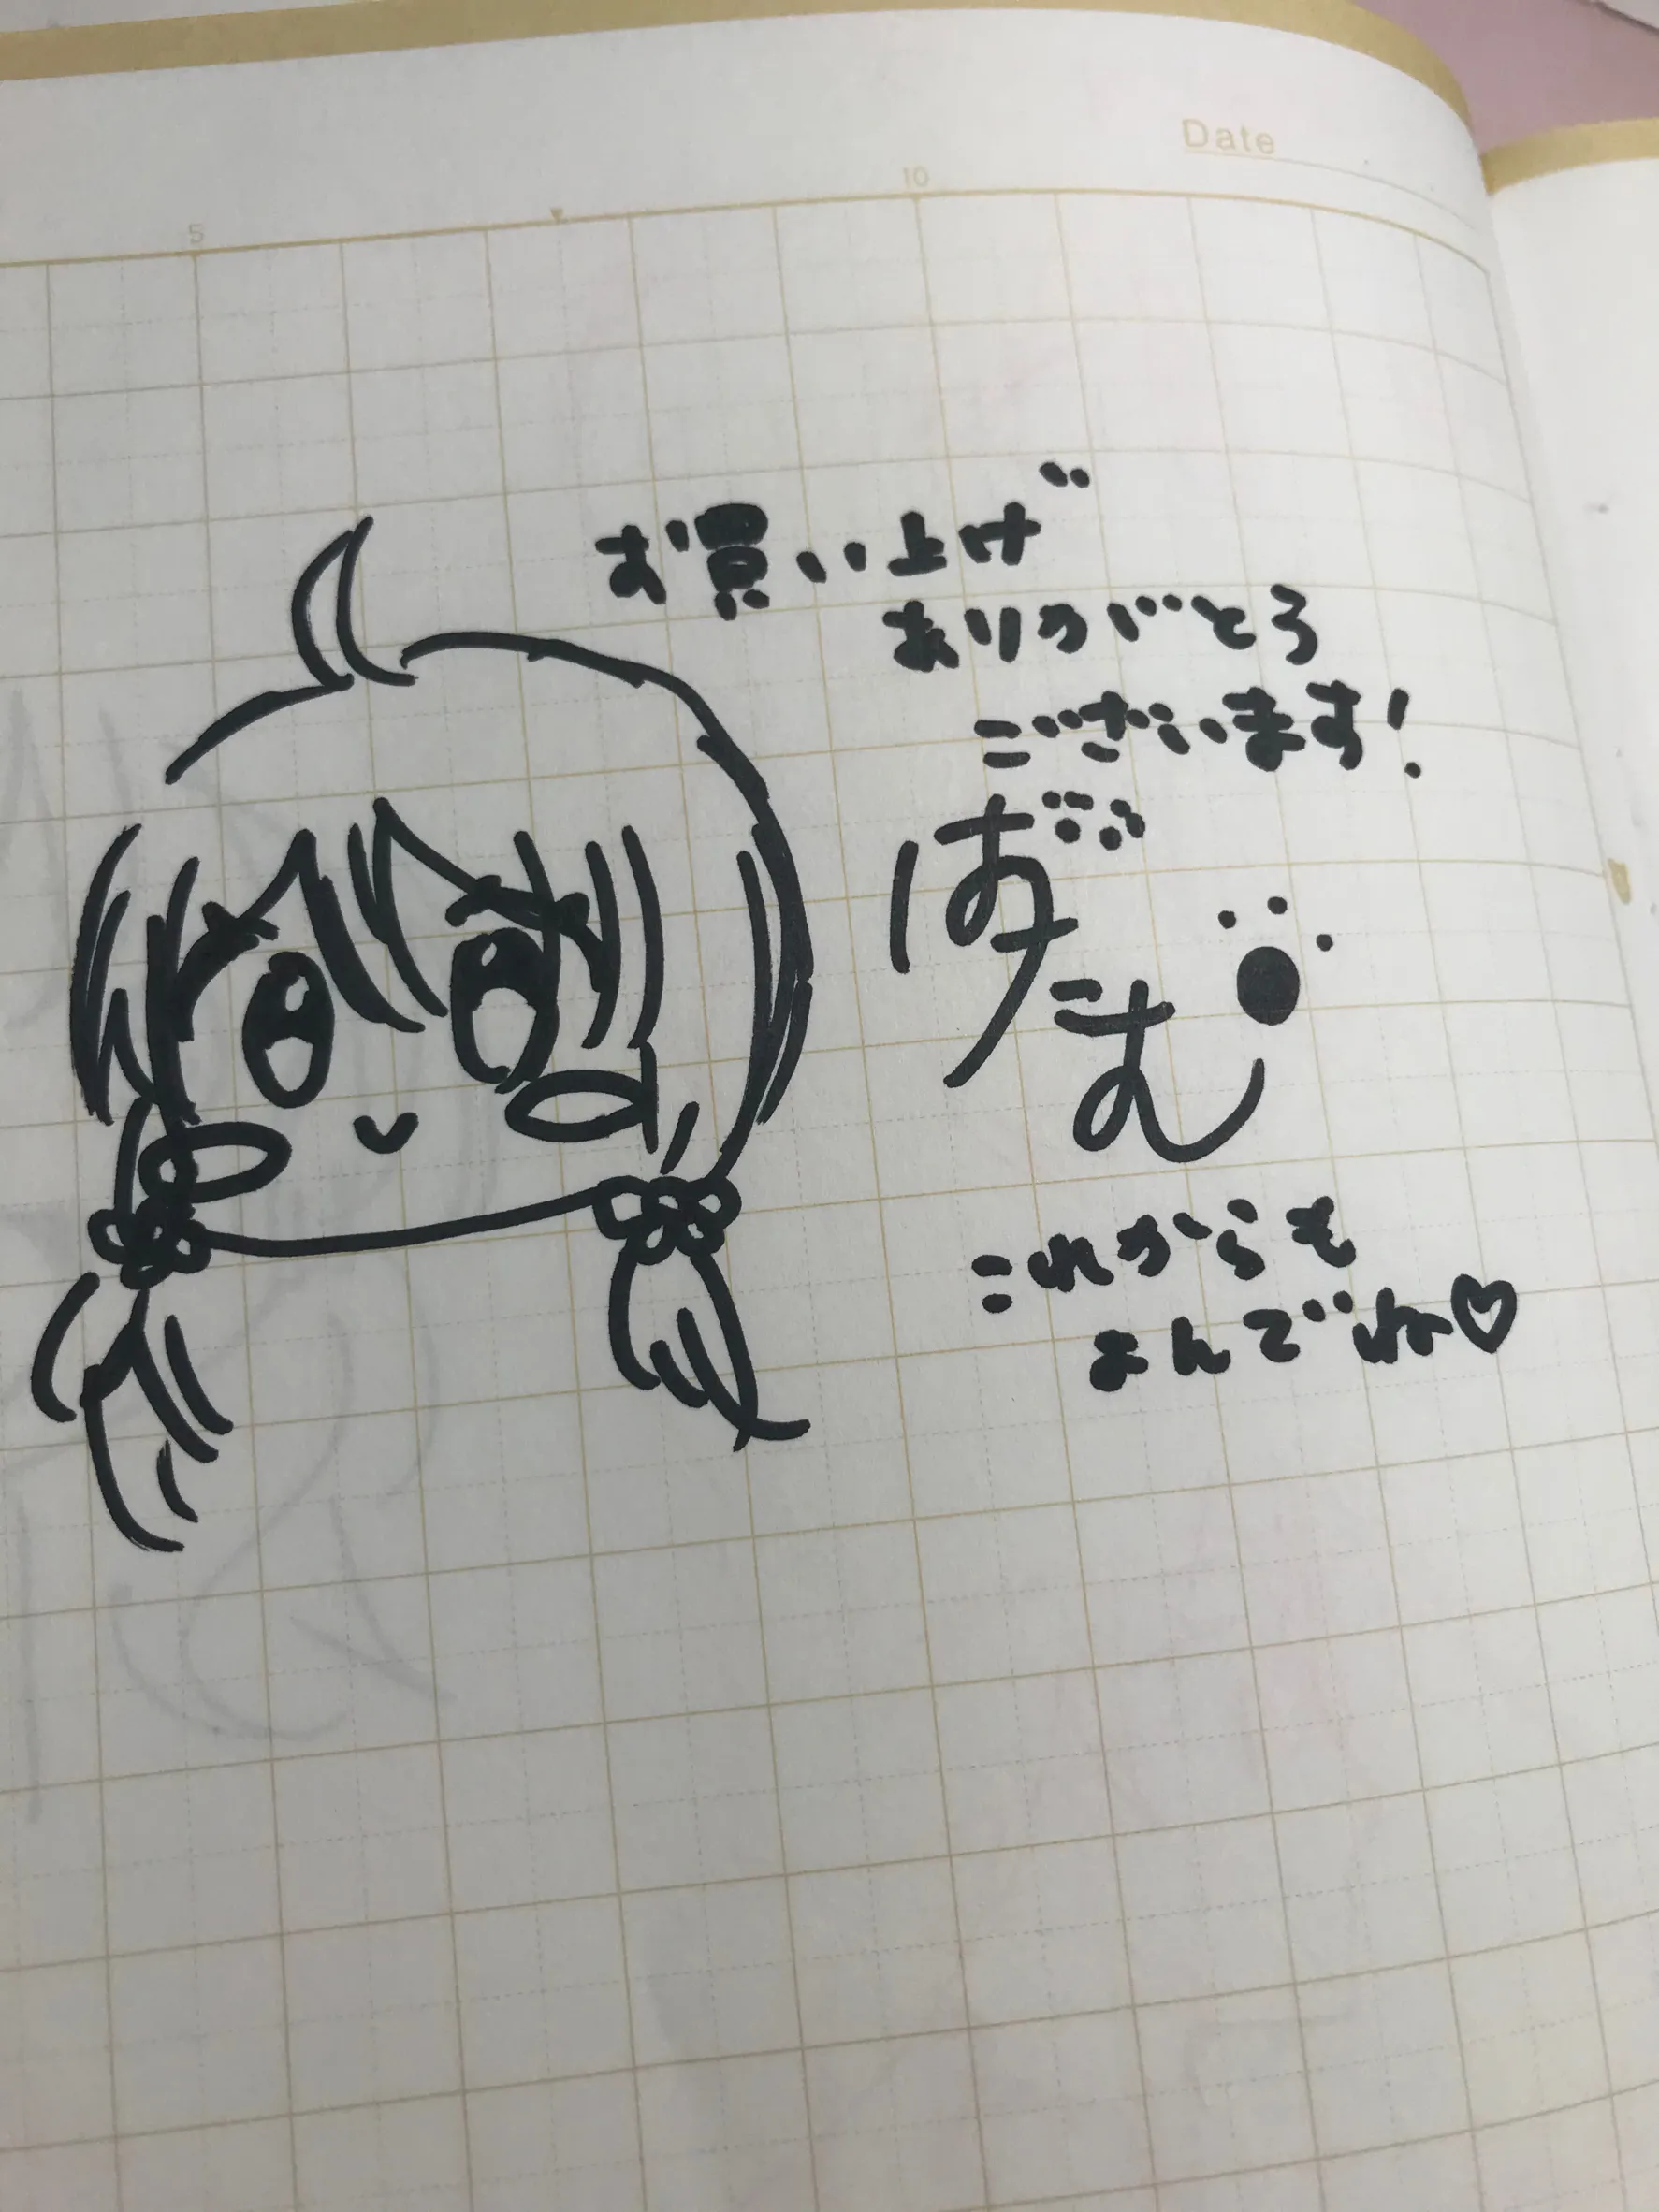 Date
5
10
お買い上げ
ありがとう
ございます!
ばむ
これからも
よんでね♡